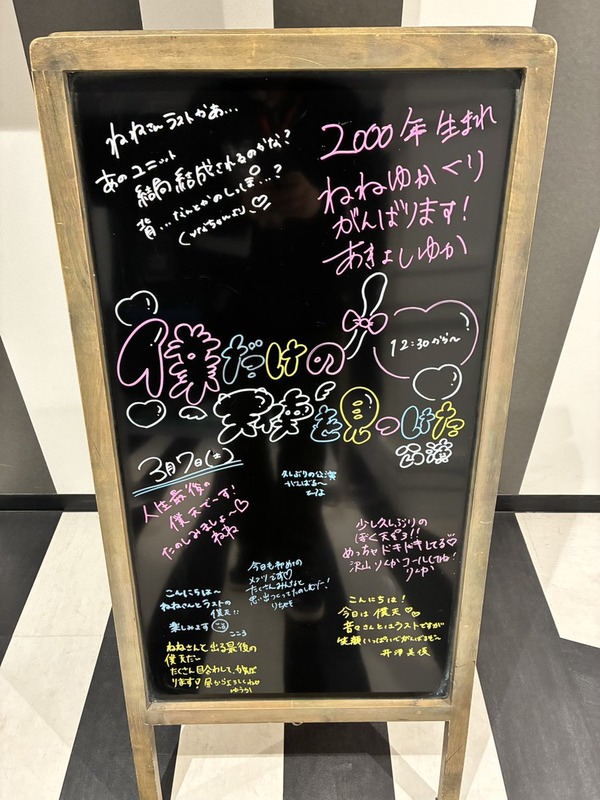 ねねさんラストかぁ…
あのユニット
結局結成されるのかな？
背…だんとかのしっぽ…？
2000年生まれ
ねねゆかくり
がんばります！
あきよしゆか
僕だけの
12:30から〜
天使を見つけた
公演
3月7日(土)
人生最後の
僕天でーす！
たのしみましょ〜♡
ねね
久しぶりの公演
がんばる〜
少し久しぶりの
ぼく天だヨ!!
めっちゃドキドキしてる♡
沢山りんかコールしてね！
りんか
今日も初めての
メンツです♡
たくさんみんなと
思い出つくってたのしむた！
こんにちは〜
ねねさんとラストの
僕天!!
楽しみます
こころ
こんにちは！
今日は僕天♡♡
音々さんとはラストですが
笑顔いっぱいでがんばるぞ〜
井澤美優
ねねさんと出る最後の
僕天だ〜
たくさん目合わして、かんば
ります！昼からよろしくね♡
ゆうか